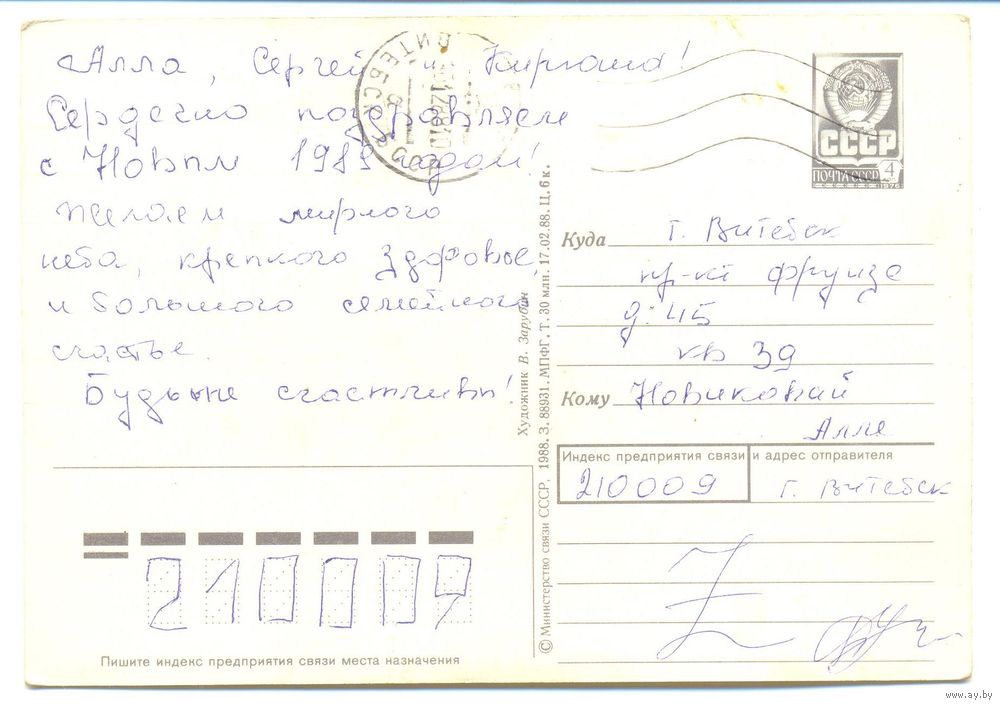 Алла, Сергей и Кирюша!
Сердечно поздравляем
с Новым 1989 годом!
Желаем мирного
неба, крепкого здоровье,
и большого семейного
счастье.
Будьте счастливы!
Художник В. Зарубин
© Министерство связи СССР, 1988. З. 88931. МПФГ. Т. 30 млн. 17.02.88. Ц. 6 к.
СССР
ПОЧТА СССР 4
1976
ВИТЕБСК
Куда г. Витебск
пр-кт Фрунзе
д. 45
кв 39
Кому Новиковай
Алле
Индекс предприятия связи и адрес отправителя
210009 г. Витебск
210009
Пишите индекс предприятия связи места назначения
www.ay.by